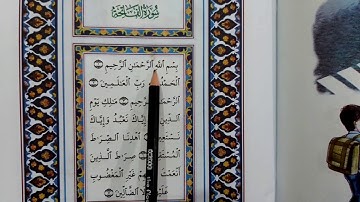 سُورَةُ الْفَاتِحَةِ
بِسْمِ ٱللَّهِ ٱلرَّحْمَٰنِ ٱلرَّحِيمِ
ٱلْحَمْدُ رَبِّ ٱلْعَٰلَمِينَ
ٱلرَّحْمَٰنِ ٱلرَّحِيمِ مَٰلِكِ يَوْمِ
ٱلدِّينِ إِيَّاكَ نَعْبُدُ وَإِيَّاكَ
نَسْتَعِينُ ٱهْدِنَا ٱلصِّرَٰطَ
ٱلْمُسْتَقِيمَ صِرَٰطَ ٱلَّذِينَ
أَنْعَمْتَ غَيْرِ ٱلْمَغْضُوبِ
ٱلضَّآلِّينَ